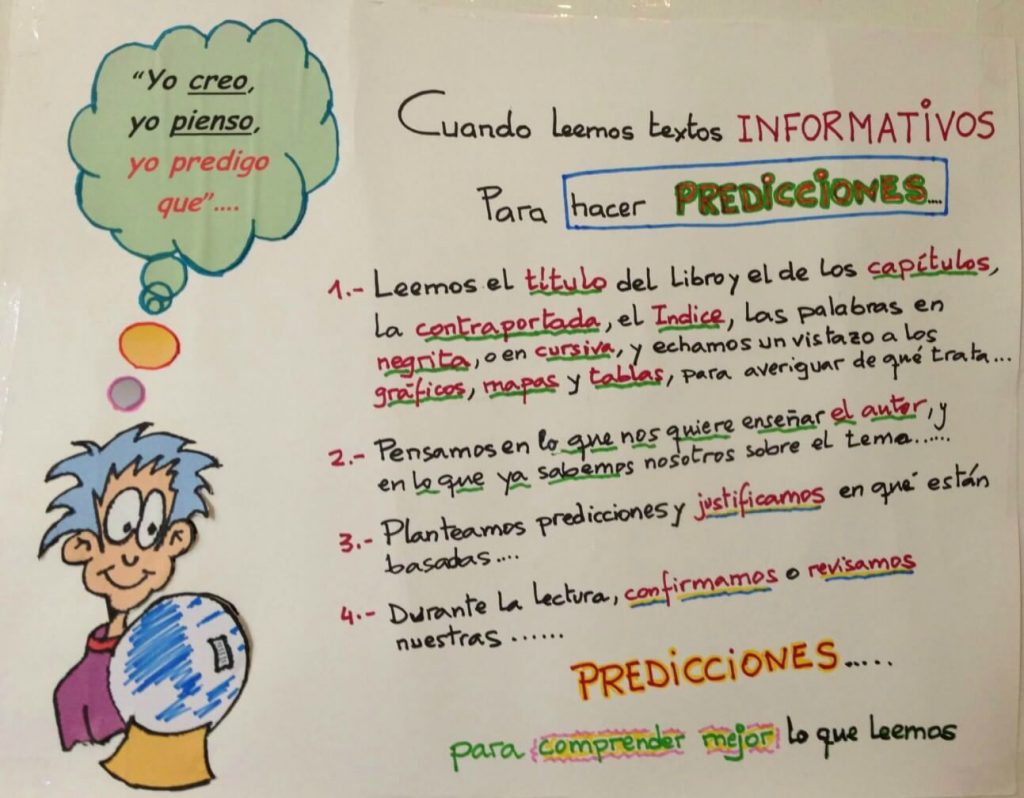 “Yo creo,
yo pienso,
yo predigo
que”....
Cuando leemos textos INFORMATIVOS
Para hacer PREDICCIONES....
1.- Leemos el título del Libro y el de los capítulos,
la contraportada, el Indice, las palabras en
negrita, o en cursiva, y echamos un vistazo a los
gráficos, mapas y tablas, para averiguar de qué trata...
2.- Pensamos en lo que nos quiere enseñar el autor, y
en lo que ya sabemos nosotros sobre el tema......
3.- Planteamos predicciones y justificamos en qué están
basadas....
4.- Durante la lectura, confirmamos o revisamos
nuestras ......
PREDICCIONES.....
para comprender mejor lo que leemos